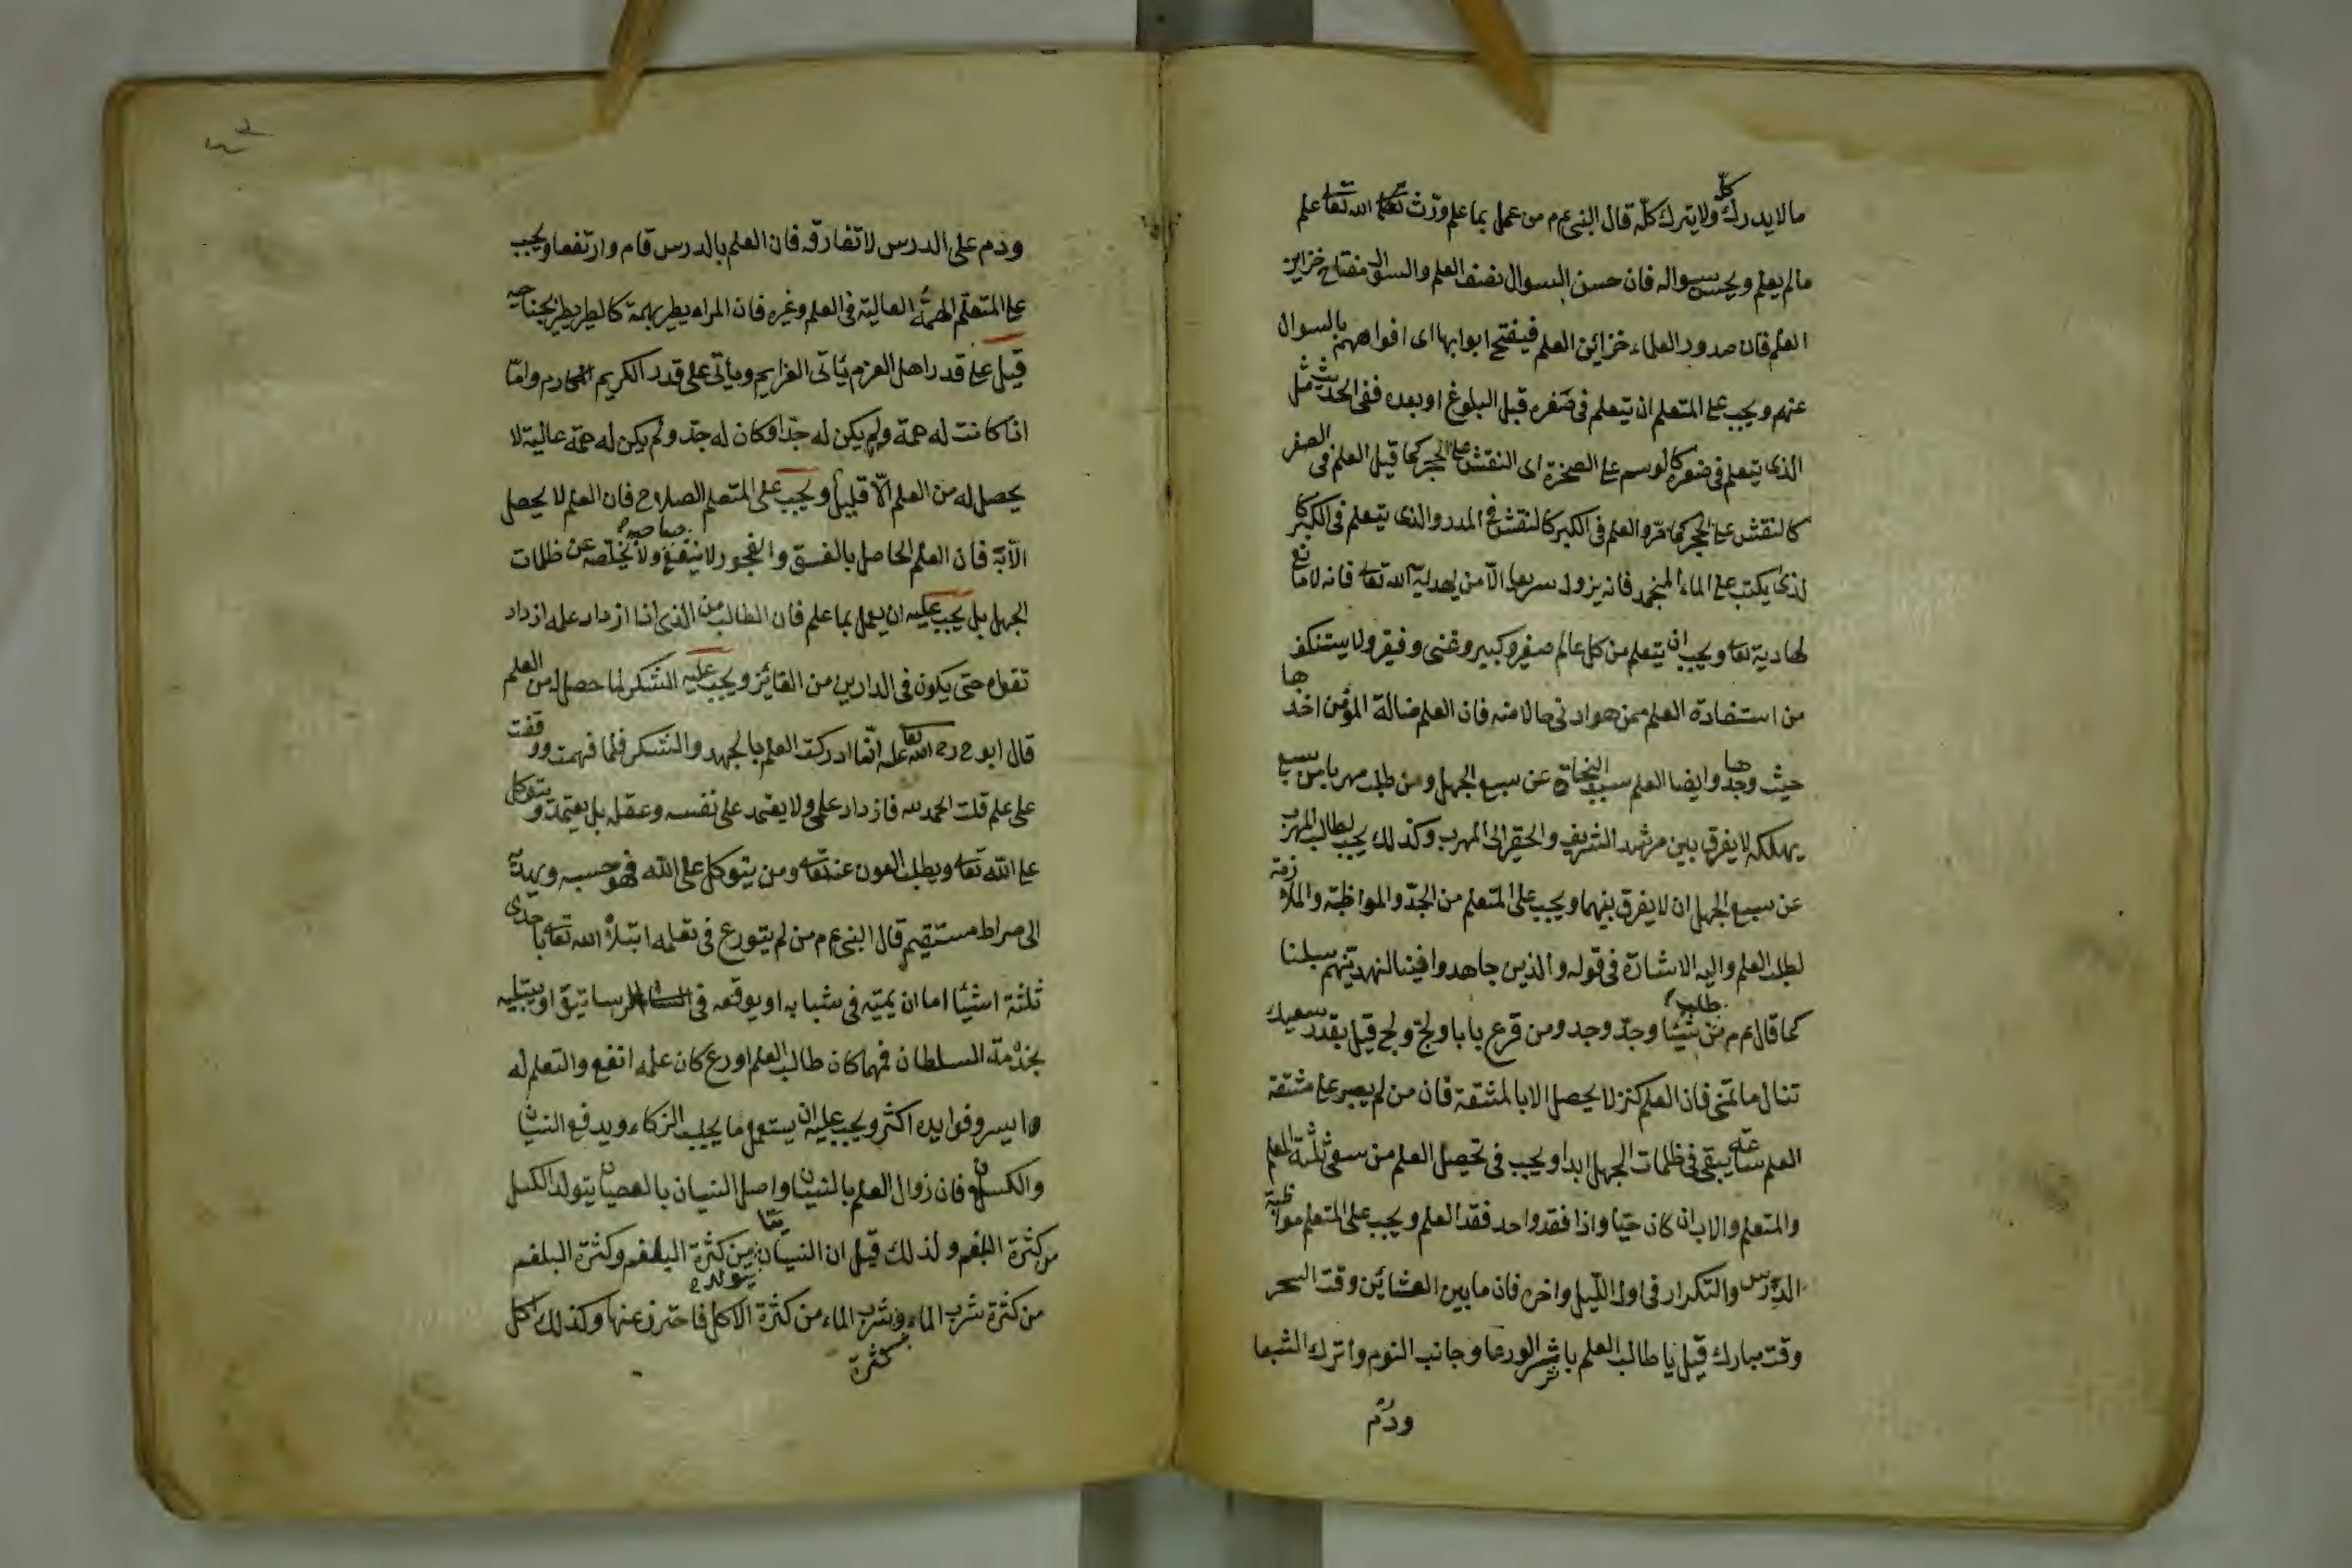 ما لا يدرك كلّ ولا يترك كلّه قال النبى عم م من عمل بما علم ورّث الله تعا علم
مالم يعلم ويحسن سواله فان حسن السوال نصف العلم والسوال مفتاح خزاين
العلم فان صدور العلماء خزائن العلم فيفتح ابوابها اى افواههم بالسوال
عنهم ويجب على المتعلم ان يتعلم فى صغره قبل البلوغ او بعده ففى الحديث مثل
الذى يتعلم فى صغره كالوسم على الصخرة اى النقش على الحجر كما قيل العلم فى الصغر
كالنقش على الحجر كما مرّ والعلم فى الكبر كالنقش فى المدر والذى يتعلم فى الكبر كا
لذى يكتب على الماء المنجمد فانه يزول سريعا الّا من يهديه الله تعا فانه لا مانع
لهاديه تعا ويجب ان يتعلم من كل عالم صغير وكبير وغنى وفقير ولا يستنكف
من استفادة العلم ممن هو ادنى حالا منه فان العلم ضالة المؤمن اخذها
حيث وجدها وايضا العلم سبب النجاة عن سبع الجهل ومن طلب مهربا من سبع
يهلكه لا يفرق بين مرشد الشريف والحقير الى المهرب وكذلك يجب لطالب المهرب
عن سبع الجهل ان لا يفرق بينهما ويجب على المتعلم من الجدّ والمواظبة والملازمة
لطلب العلم واليه الاشارة فى قوله والذين جاهدوا فينا لنهدينهم سبلنا
كما قال عم م من طلب شيئا وجدّ وجد ومن قرع بابا ولجّ ولج قيل بقدر سعيك
تنال ما تمنى فان العلم كنز لا يحصل الا بالمشقة فان من لم يصبر على مشقة
العلم ساعة يبقى فى ظلمات الجهل ابدا ويجب فى تحصيل العلم من سعى ثلثة المعلم
والمتعلم والاب ان كان حيّا واذا فقد واحد فقد العلم ويجب على المتعلم مواظبة
الدرس والتكرار فى اول الليل واخره فان ما بين العشائين وقت السحر
وقت مبارك قيل يا طالب العلم باشر الورعا وجانب النوم واترك الشبعا
ودم
ودم على الدرس لا تفارقه فان العلم بالدرس قام وارتفعا ويجب
على المتعلم الهمّة العالية فى العلم وغيره فان المراء يطير بهمة كالطير يطير بجناحيه
قيل على قدر اهل العزم يأتى العزايم ويأتى على قدر الكريم المكارم وامّا
اذا كانت له همة ولم يكن له جدّ او كان له جدّ ولم يكن له همة عالية لا
يحصل له من العلم الّا قليلا ويجب على المتعلم الصلاح فان العلم لا يحصل
الّا به فان العلم الحاصل بالفسق والفجور لا ينفع صاحبه ولا يخلّصه عن ظلمات
الجهل بل يجب عليه ان يعمل بما علم فان الطالب من الذى اذا ازداد علمه ازداد
تقواه حتى يكون فى الدارين من الفائز ويجب عليه الشكر لما حصل له من العلم
قال ابو ح رح الله تعا عليه انّما ادركت العلم بالجهد والشكر فلما فهمت ووقفت
على علم قلت الحمد لله فازداد علمى ولا يعتمد على نفسه وعقله بل يعتمد ويتوكل
على الله تعا ويطلب العون عنه تعا ومن يتوكل على الله فهو حسبه ويهديه
الى صراط مستقيم قال النبى عم م من لم يتورع فى تعلمه ابتلاه الله تعا باحدى
ثلثة اشيئا اما ان يميته فى شبابه او يوقعه فى الرساتيق او يبتليه
بخدمة السلطان فمهما كان طالب العلم اورع كان علمه انفع والتعلم له
ايسر وفوايده اكثر ويجب عليه ان يستعمل ما يجلب الزكاء ويدفع النسيان
والكسل فان زوال العلم بالنسيان واصل النسيان بالعصيان يتولد الكسل
من كثرة البلغم ولذلك قيل ان النسيان من كثرة البلغم وكثرة البلغم
يتولد
من كثرة شرب الماء وشرب الماء من كثرة الاكل فاحترز عنها وكذلك اكل
كثرة